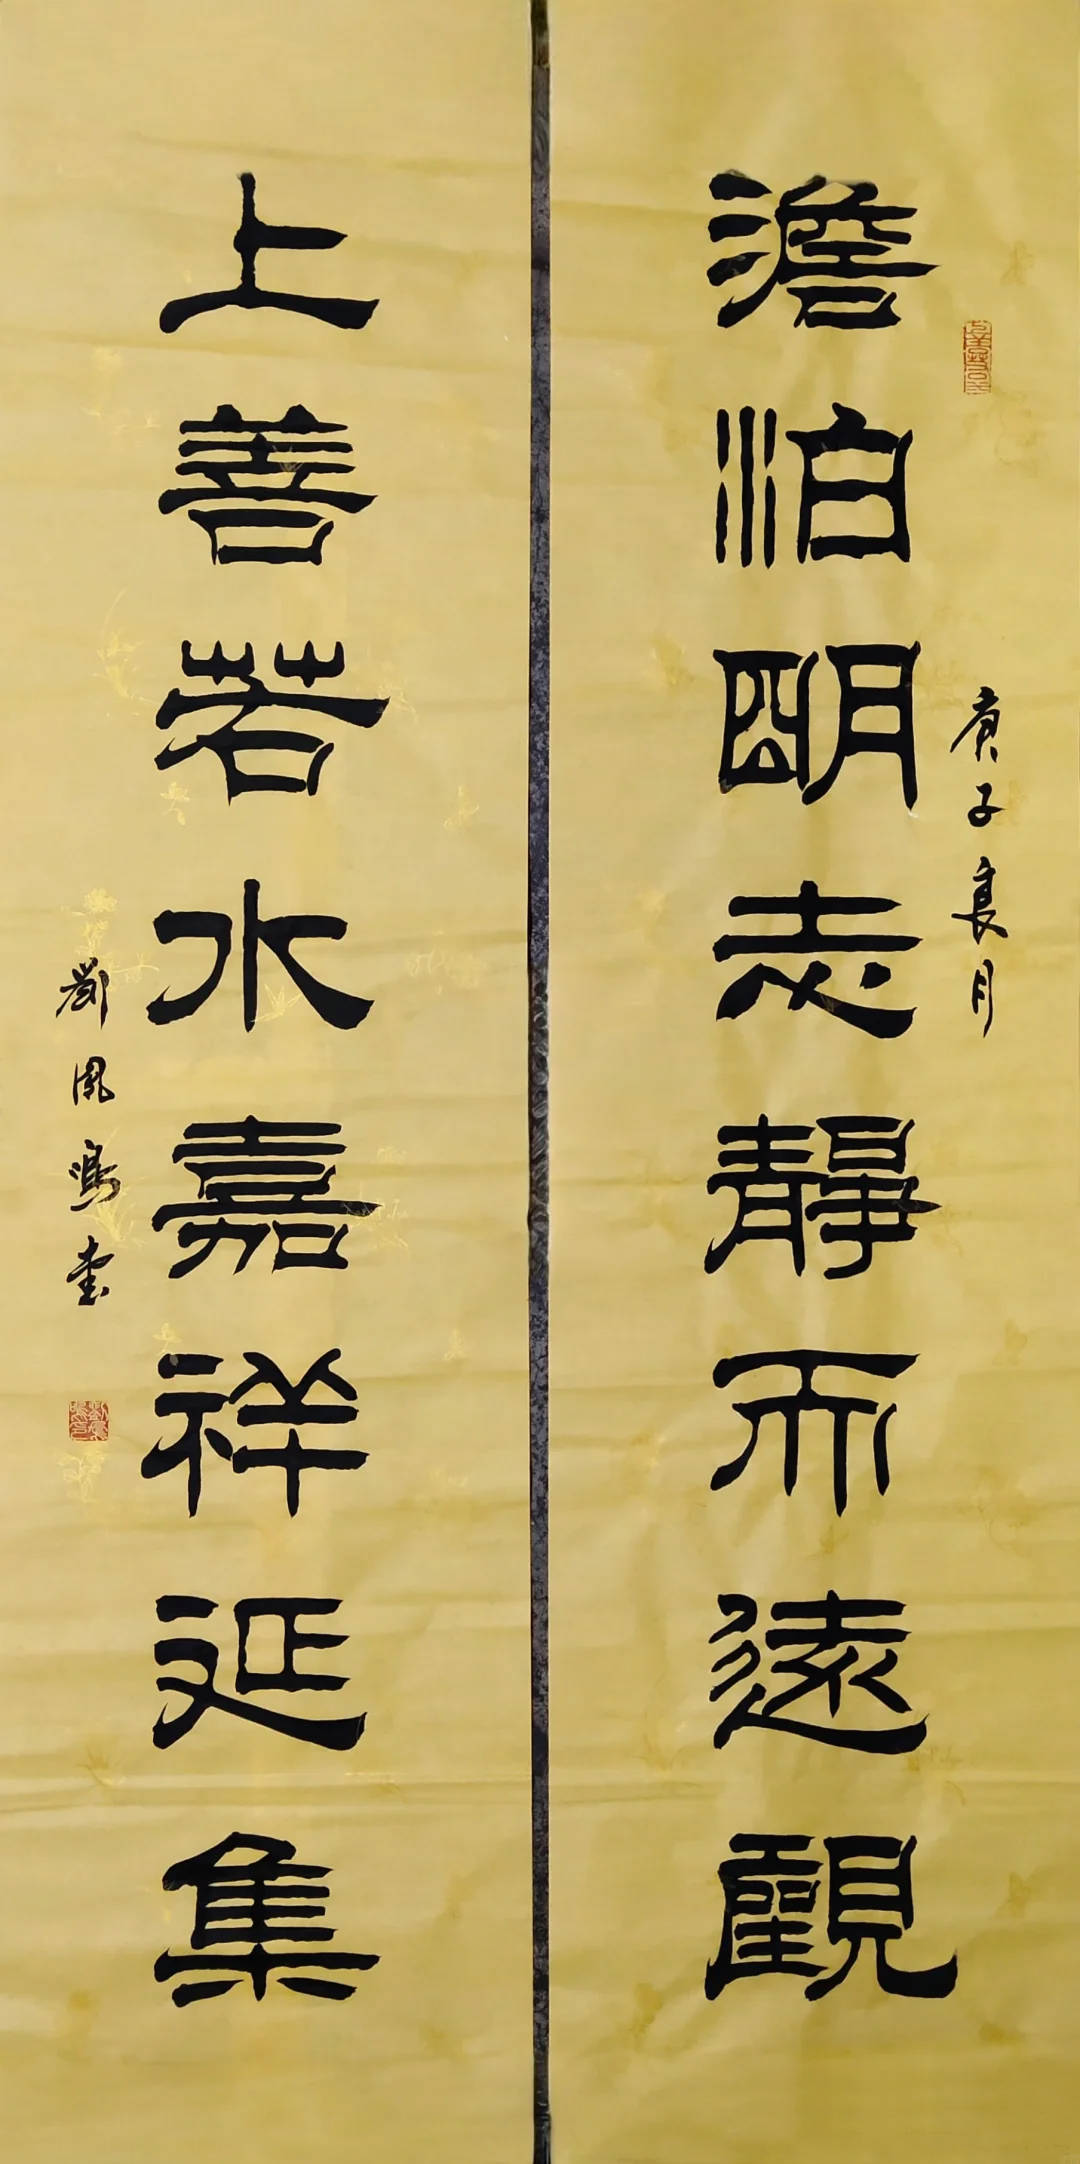 澹泊明志靜而遠觀
庚子良月
上善若水嘉祥延集
劉鳳鳴書